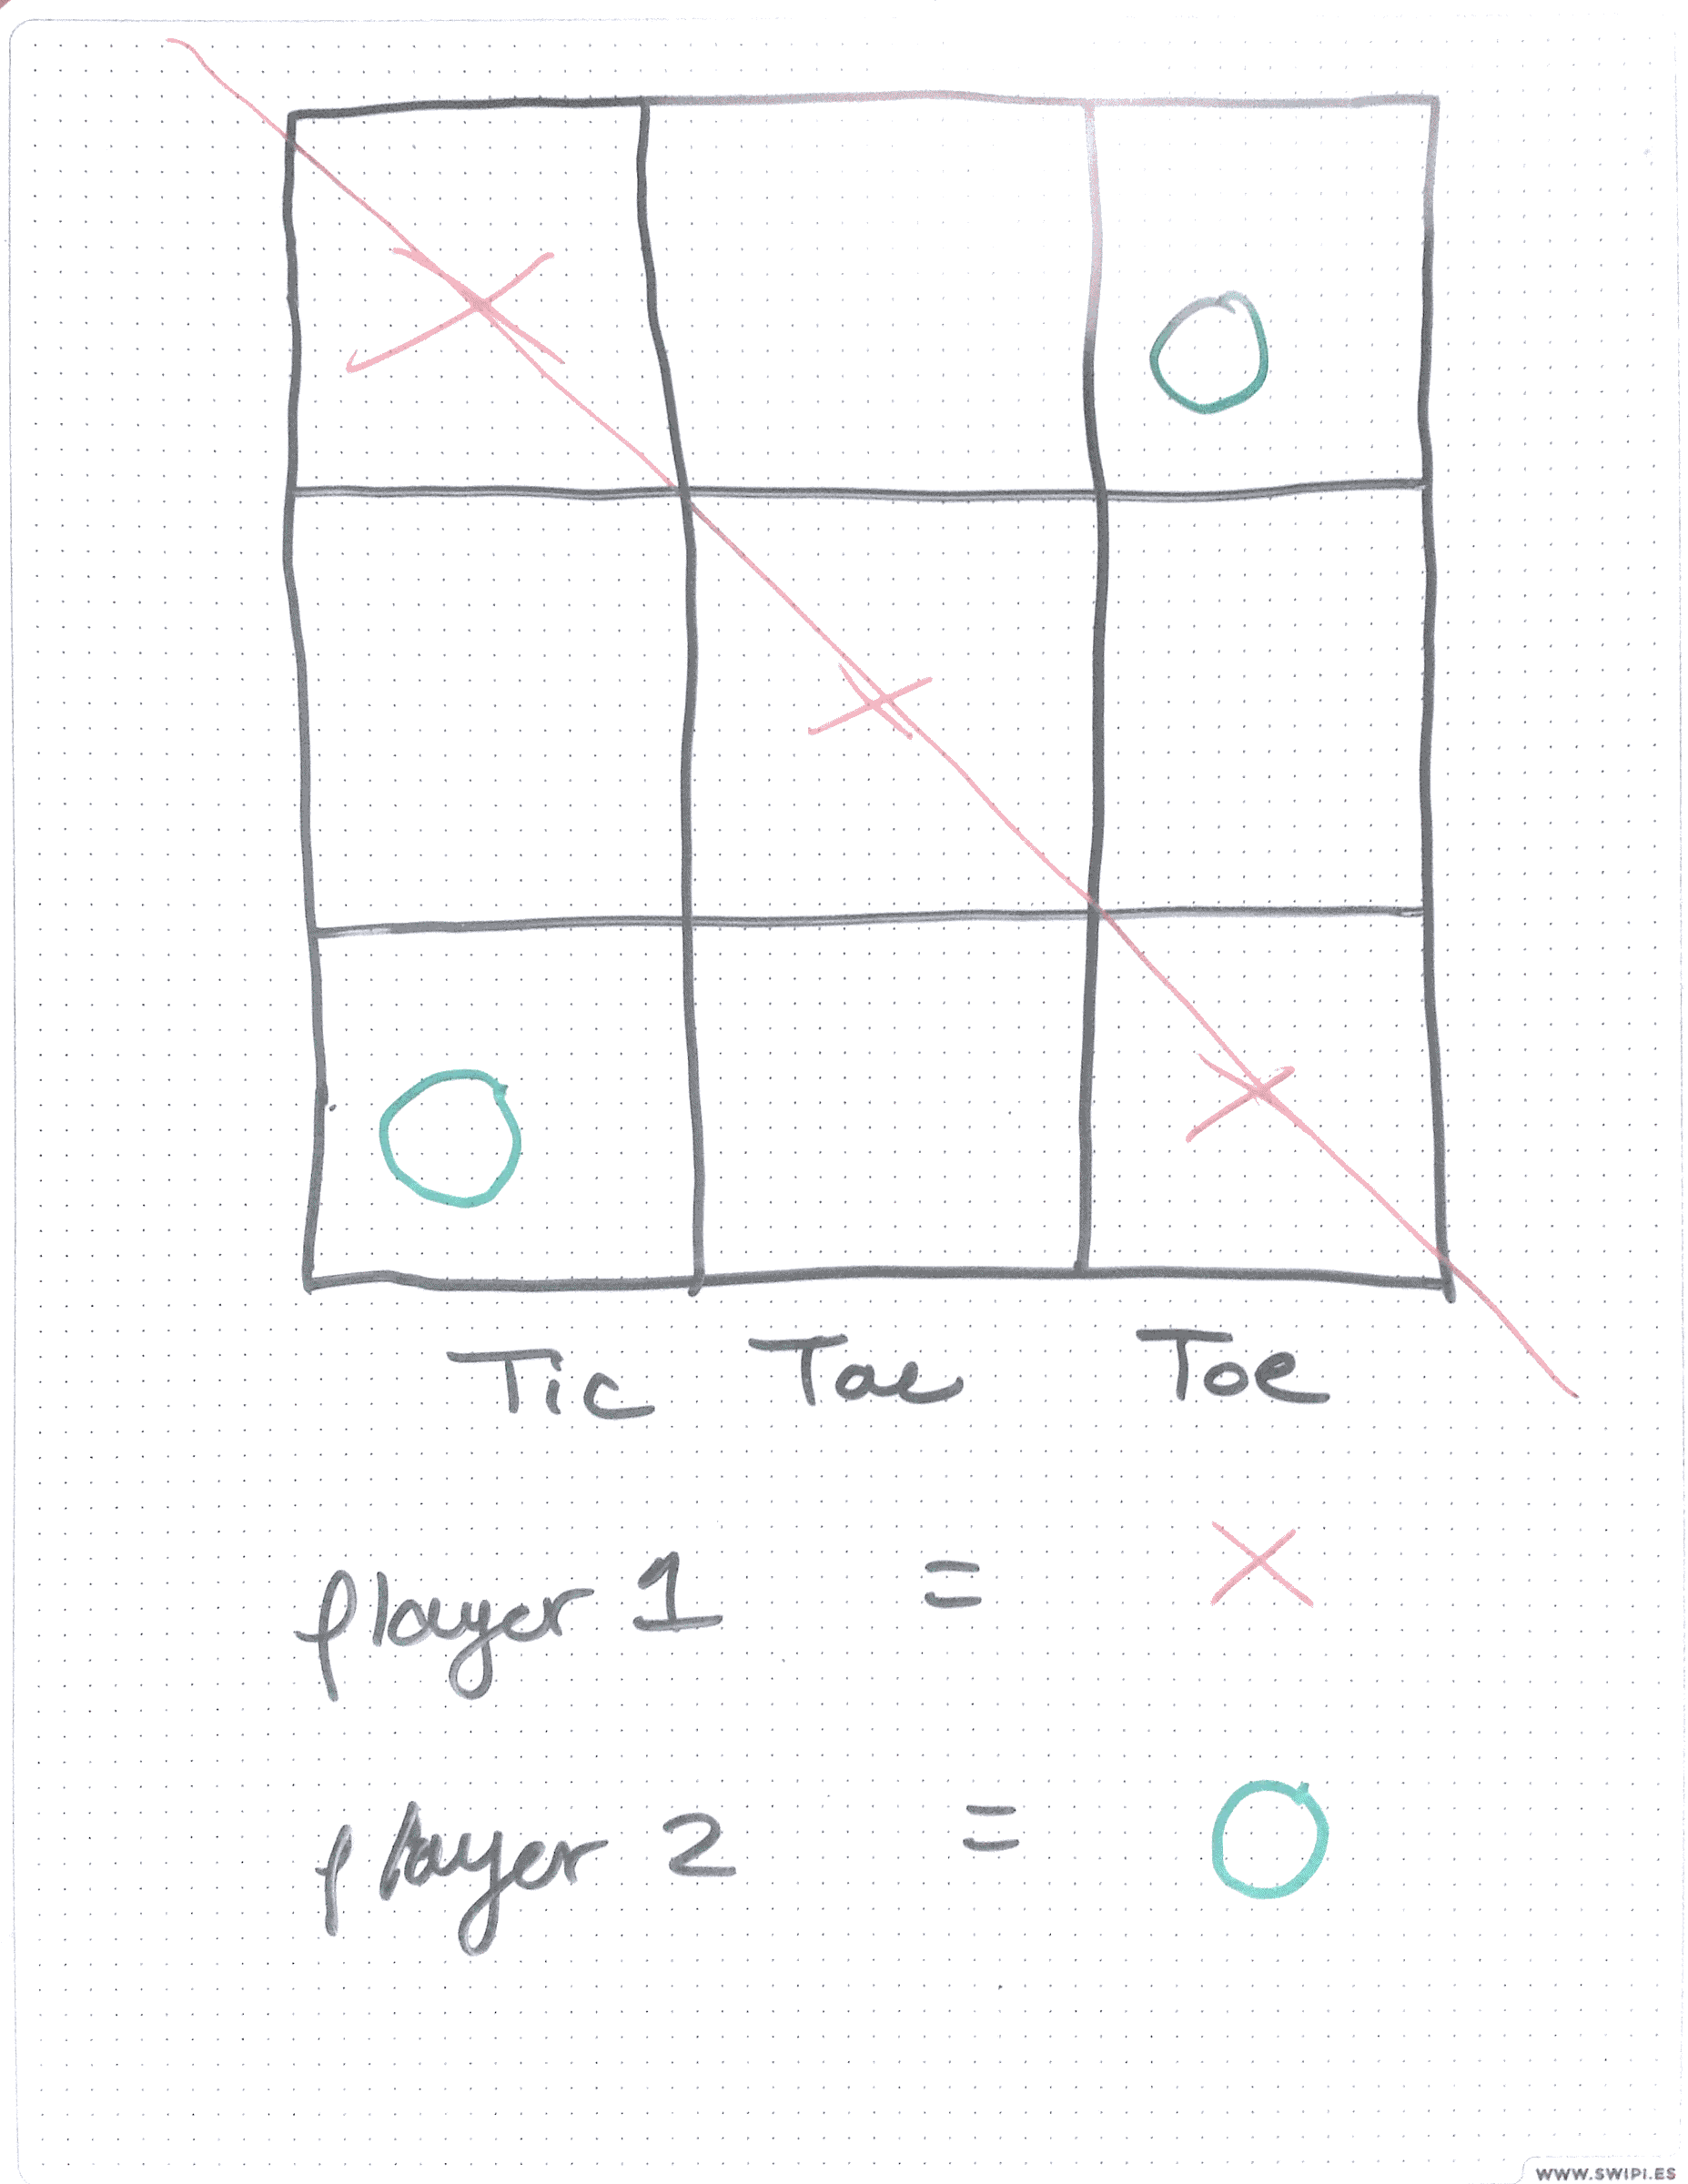 Tic Tac Toe
player 1 = X
player 2 = O
WWW.SWIPI.ES